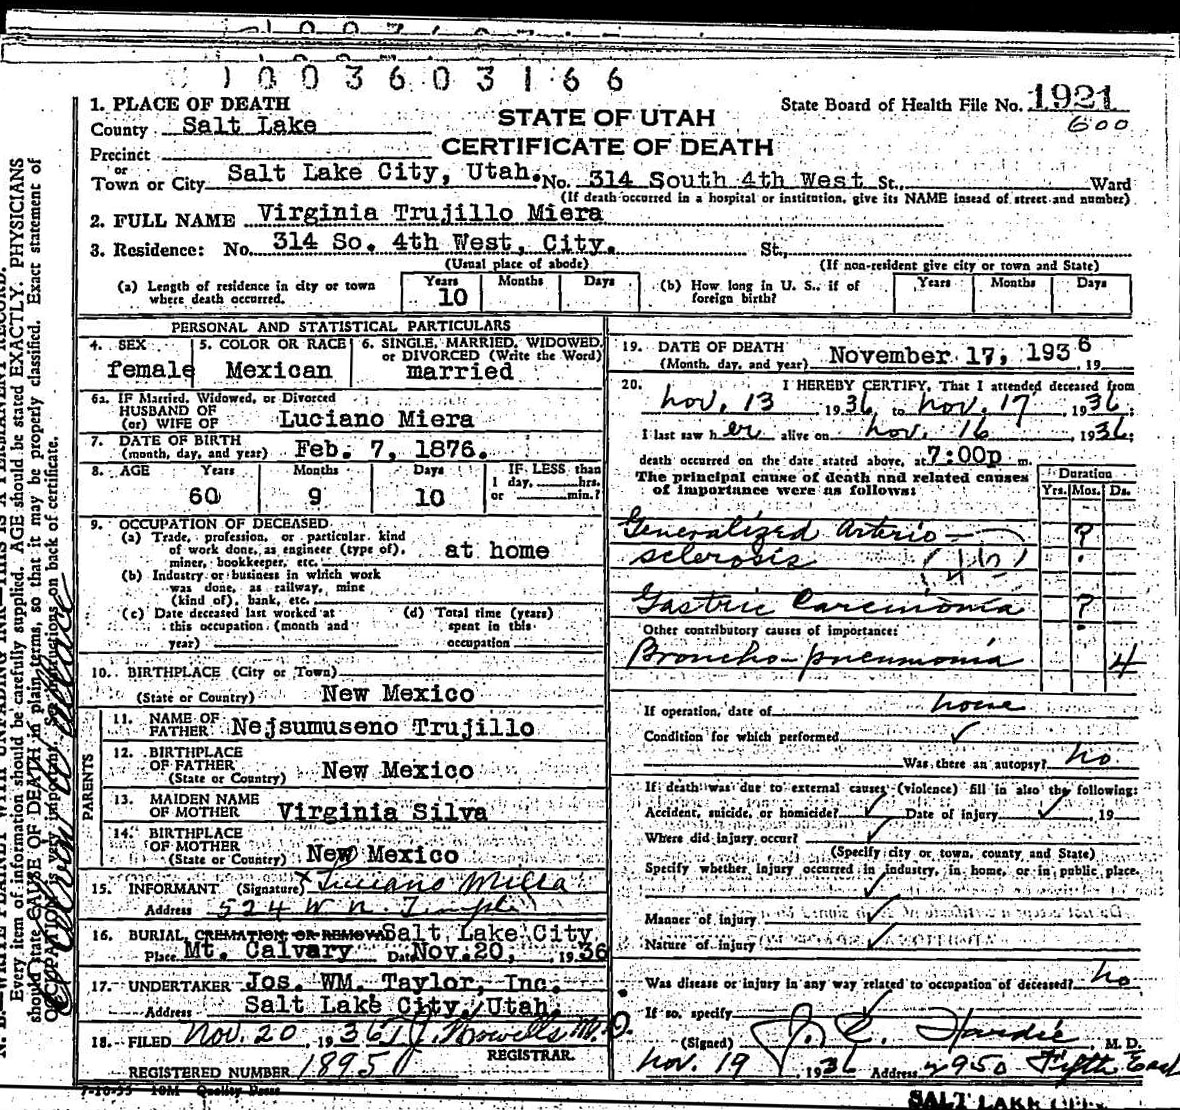 1003603166
1. PLACE OF DEATH
County Salt Lake
STATE OF UTAH
CERTIFICATE OF DEATH
State Board of Health File No. 1921
600
Precinct
or
Town or City Salt Lake City, Utah. No. 314 South 4th West St., Ward
(If death occurred in a hospital or institution, give its NAME insead of street and number)
2. FULL NAME Virginia Trujillo Miera
3. Residence: No. 314 So. 4th West, City. St.,
(Usual place of abode) (If non-resident give city or town and State)
(a) Length of residence in city or town where death occurred. Years 10 Months Days
(b) How long in U. S., if of foreign birth? Years Months Days
PERSONAL AND STATISTICAL PARTICULARS
4. SEX female
5. COLOR OR RACE Mexican
6. SINGLE, MARRIED, WIDOWED, or DIVORCED (Write the Word) married
6a. IF Married, Widowed, or Divorced
HUSBAND OF
(or) WIFE OF Luciano Miera
7. DATE OF BIRTH
(month, day, and year) Feb. 7, 1876.
8. AGE Years Months Days IF LESS than
1 day, hrs.
or min.?
60 9 10
9. OCCUPATION OF DECEASED
(a) Trade, profession, or particular kind
of work done, as engineer (type of),
miner, bookkeeper, etc. at home
(b) Industry or business in which work
was done, as railway, mine
(kind of), bank, etc.
(c) Date deceased last worked at
this occupation (month and
year)
(d) Total time (years)
spent in this
occupation
10. BIRTHPLACE (City or Town)
(State or Country) New Mexico
PARENTS
11. NAME OF
FATHER Nejsumuseno Trujillo
12. BIRTHPLACE
OF FATHER
(State or Country) New Mexico
13. MAIDEN NAME
OF MOTHER Virginia Silva
14. BIRTHPLACE
OF MOTHER
(State or Country) New Mexico
15. INFORMANT (Signature) x Luciano Miera
Address 524 W. N. Temple
16. BURIAL, CREMATION OR REMOVAL Salt Lake City
Place Mt. Calvary Date Nov. 20, 1936
17. UNDERTAKER Jos. WM. Taylor, Inc.
Address Salt Lake City, Utah.
18. FILED Nov. 20, 1936 M. D.
REGISTRAR.
REGISTERED NUMBER 1895
7-10-35 10M Quality Press
19. DATE OF DEATH
(Month, day, and year) November 17, 1936 , 19
20. I HEREBY CERTIFY, That I attended deceased from
Nov. 13, 1936, to Nov. 17, 1936;
I last saw her alive on Nov. 16, 1936;
death occurred on the date stated above, at 7:00p m.
The principal cause of death and related causes
of importance were as follows:
Duration
Yrs. Mos. Ds.
Generalized Arterio- ?
sclerosis
Gastric Carcinomia ?
Other contributory causes of importance:
Broncho-pneumonia 4
If operation, date of none
Condition for which performed
Was there an autopsy? no
If death was due to external causes (violence) fill in also the following:
Accident, suicide, or homicide? Date of injury , 19
Where did injury occur?
(Specify city or town, county and State)
Specify whether injury occurred in industry, in home, or in public place.
Manner of injury
Nature of injury
Was disease or injury in any way related to occupation of deceased? no
If so, specify
(Signed) J. C. Hardie, M. D.
Nov. 19, 1936 Address 2950 Fifth East
SALT LAKE CITY
N. B.—WRITE PLAINLY WITH UNFADING INK—THIS IS A PERMANENT RECORD.
Every item of information should be carefully supplied. AGE should be stated EXACTLY. PHYSICIANS
should state CAUSE OF DEATH in plain terms, so that it may be properly classified. Exact statement of
OCCUPATION is very important. See instructions on back of certificate.